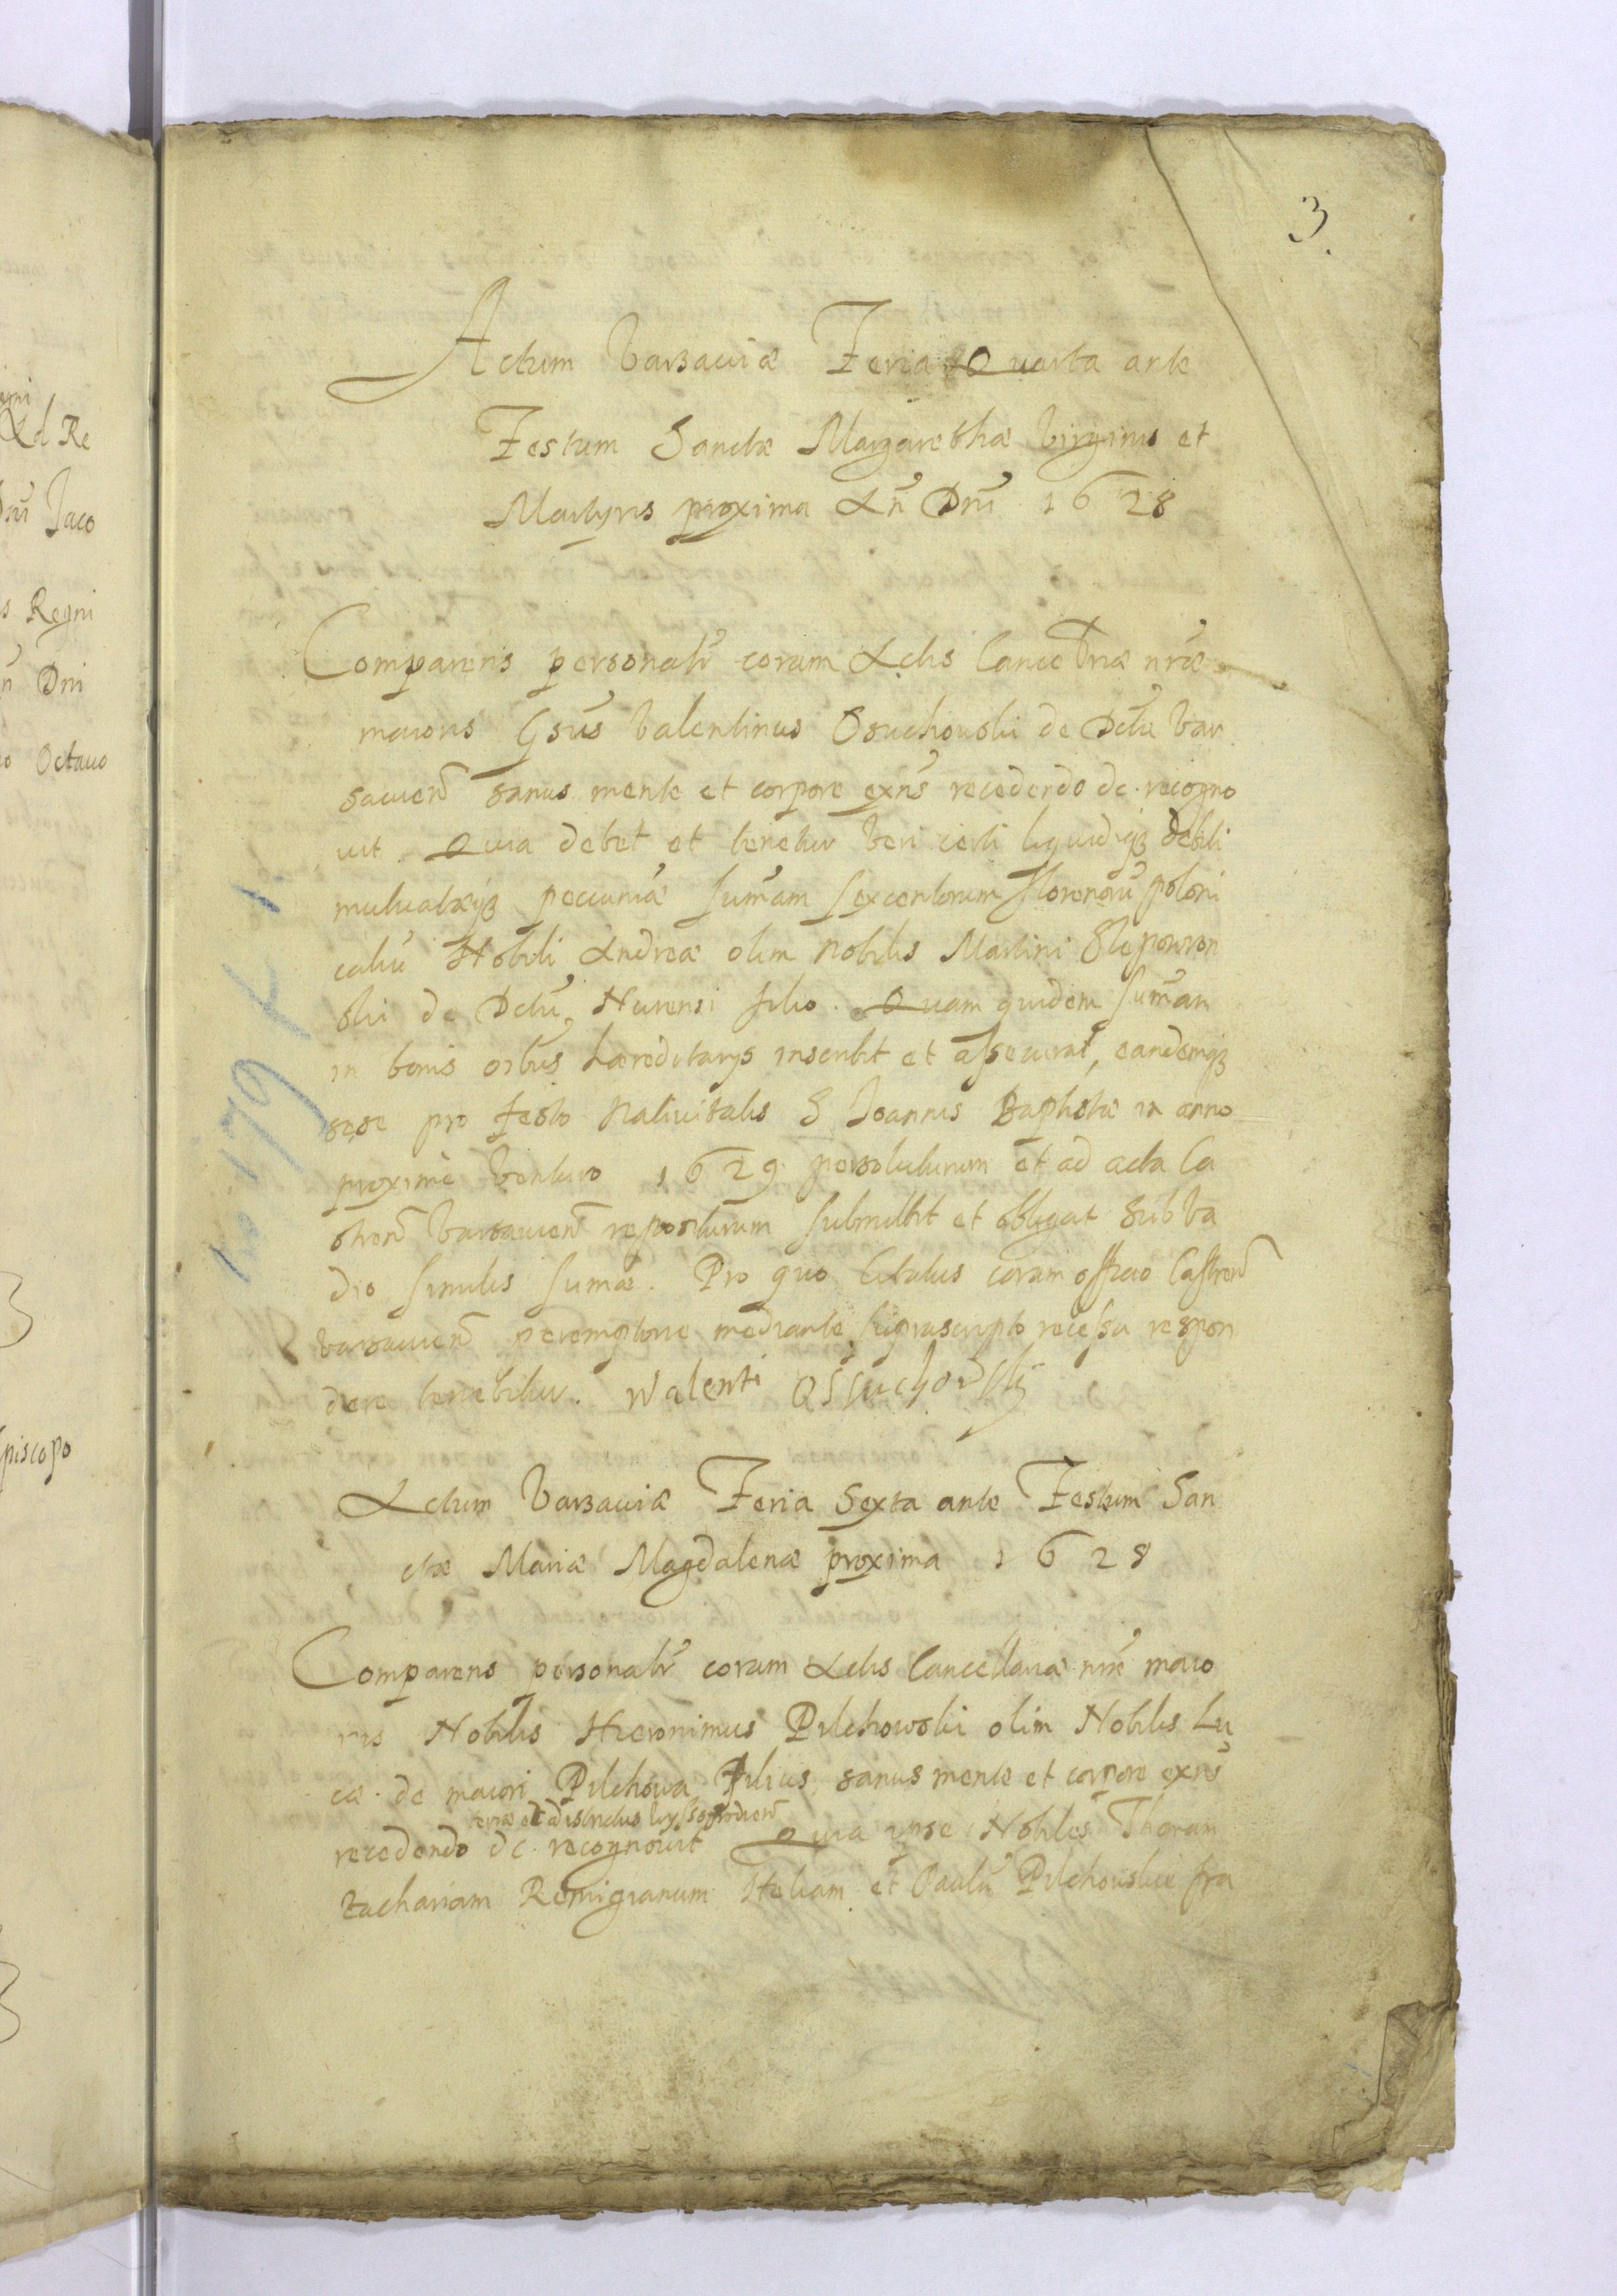 3
Actum Varsaviæ Feria Quarta ante
Festum Sanctæ Margarethæ Virginis et
Martyris proxima An Dni 1628
Comparens personalr coram Actis Cancellriæ nræ
maioris Gsus Valentinus Osuchowski de Dctu Var
savien sanus mente et corpore exns recedendo dc. recogno
vit. Quia debet et tenetur veri certi liquidiq debiti
mutuatæq pecuniæ sumam sexcentorum florenoru poloni
caliu Nobili Andreæ olim nobilis Martini
ski de Dctu Nurensi filio. Quam quidem sumam
in bonis oibus hæreditarys inscribit et assecurat, eandemq
sese pro festo Nativitatis S Joannis Baptistæ in anno
proximè venturo 1629 persoluturum et ad acta Ca
stren Varsavien repositurum submittit et obligat sub va
dio similis sumæ. Pro quo Citatus coram officio Castren
Varsavien peremptorie mediante suprascripto recessu respon
dere tenebitur. Walenti Ossuchowski
Actum Varsaviæ Feria Sexta ante Festum San
ctæ Mariæ Magdalenæ proxima 1628
Comparens personalr coram Actis Cancellariæ nræ maio
ris Nobilis Hieronimus Pilchowski olim Nobilis Lu
cæ de maiori Pilchowa Filius sanus mente et corpore exns
terræ et districtus
recedendo dc. recognovit Quia ipse Nobiles Thomam
Zachariam Remigianum Heliam et Paulu Pilchowskie fra
Ad Re
Jaco
s Regni
Dni
Octavo
piscopo